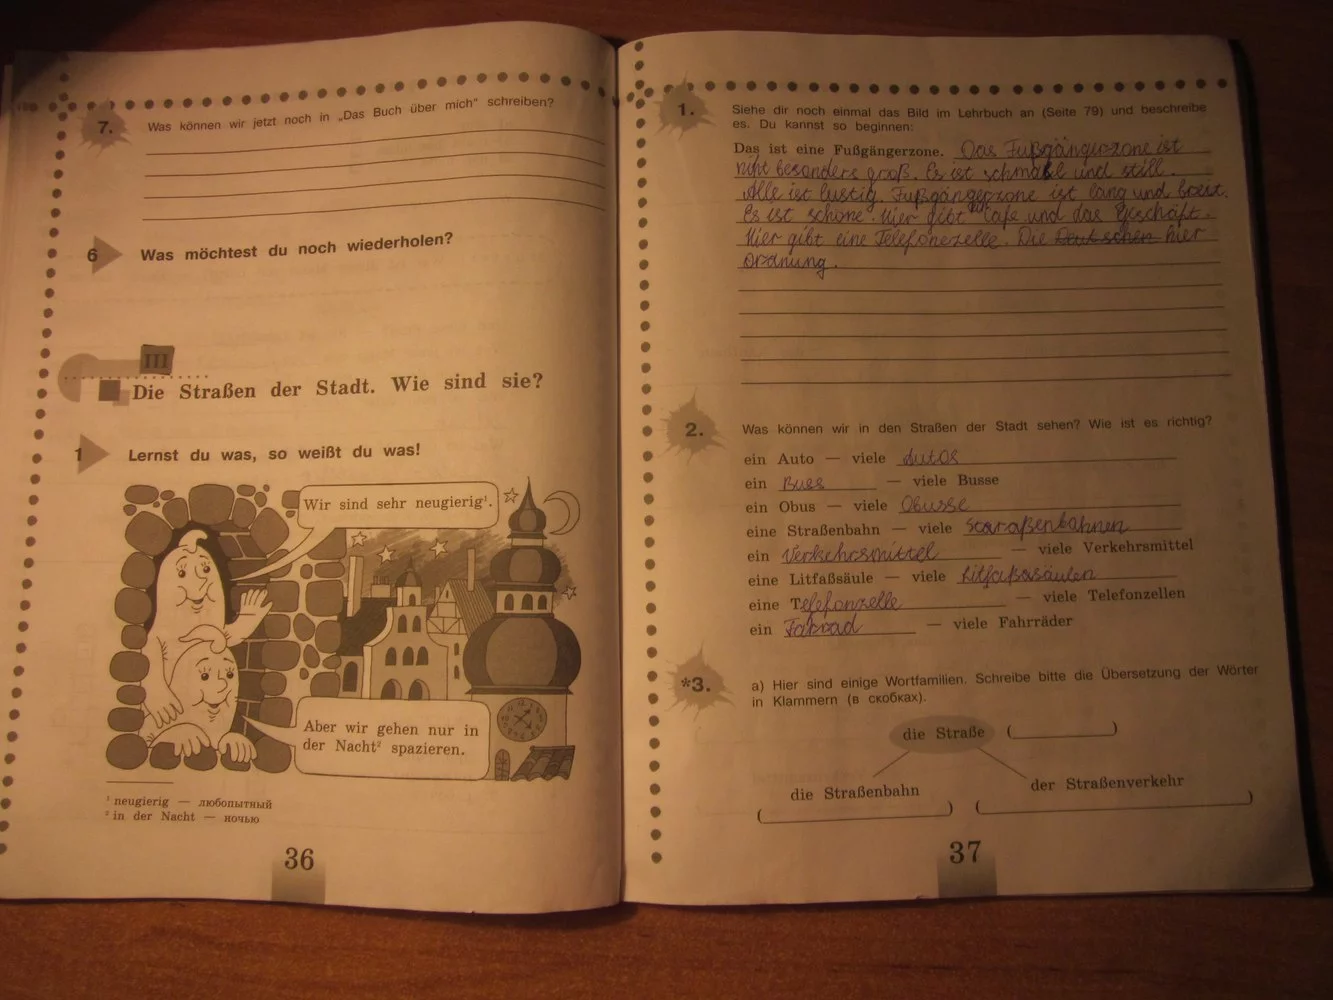 7.
Was können wir jetzt noch in „Das Buch über mich" schreiben?
6
Was möchtest du noch wiederholen?
III
Die Straßen der Stadt. Wie sind sie?
1
Lernst du was, so weißt du was!
Wir sind sehr neugierig¹.
Aber wir gehen nur in
der Nacht² spazieren.
¹ neugierig — любопытный
² in der Nacht — ночью
36
1.
Siehe dir noch einmal das Bild im Lehrbuch an (Seite 79) und beschreibe
es. Du kannst so beginnen:
Das ist eine Fußgängerzone. Das Fußgängerzone ist
niht besonders groß. Es ist schmal und still.
Alle ist lustig. Fußgängerzone ist lang und breit.
Es ist schöne. Hier gibt Cafe und das Geschäft.
Hier gibt eine Telefonezelle. Die Deutschen hier
Ordnung.
2.
Was können wir in den Straßen der Stadt sehen? Wie ist es richtig?
ein Auto — viele Autos
ein Bus — viele Busse
ein Obus — viele Obusse
eine Straßenbahn — viele Straßenbahnen
ein Verkehrsmittel — viele Verkehrsmittel
eine Litfaßsäule — viele Litfaßsäulen
eine Telefonzelle — viele Telefonzellen
ein Fahrrad — viele Fahrräder
*3.
a) Hier sind einige Wortfamilien. Schreibe bitte die Übersetzung der Wörter
in Klammern (в скобках).
die Straße ( )
die Straßenbahn der Straßenverkehr
( ) ( )
37